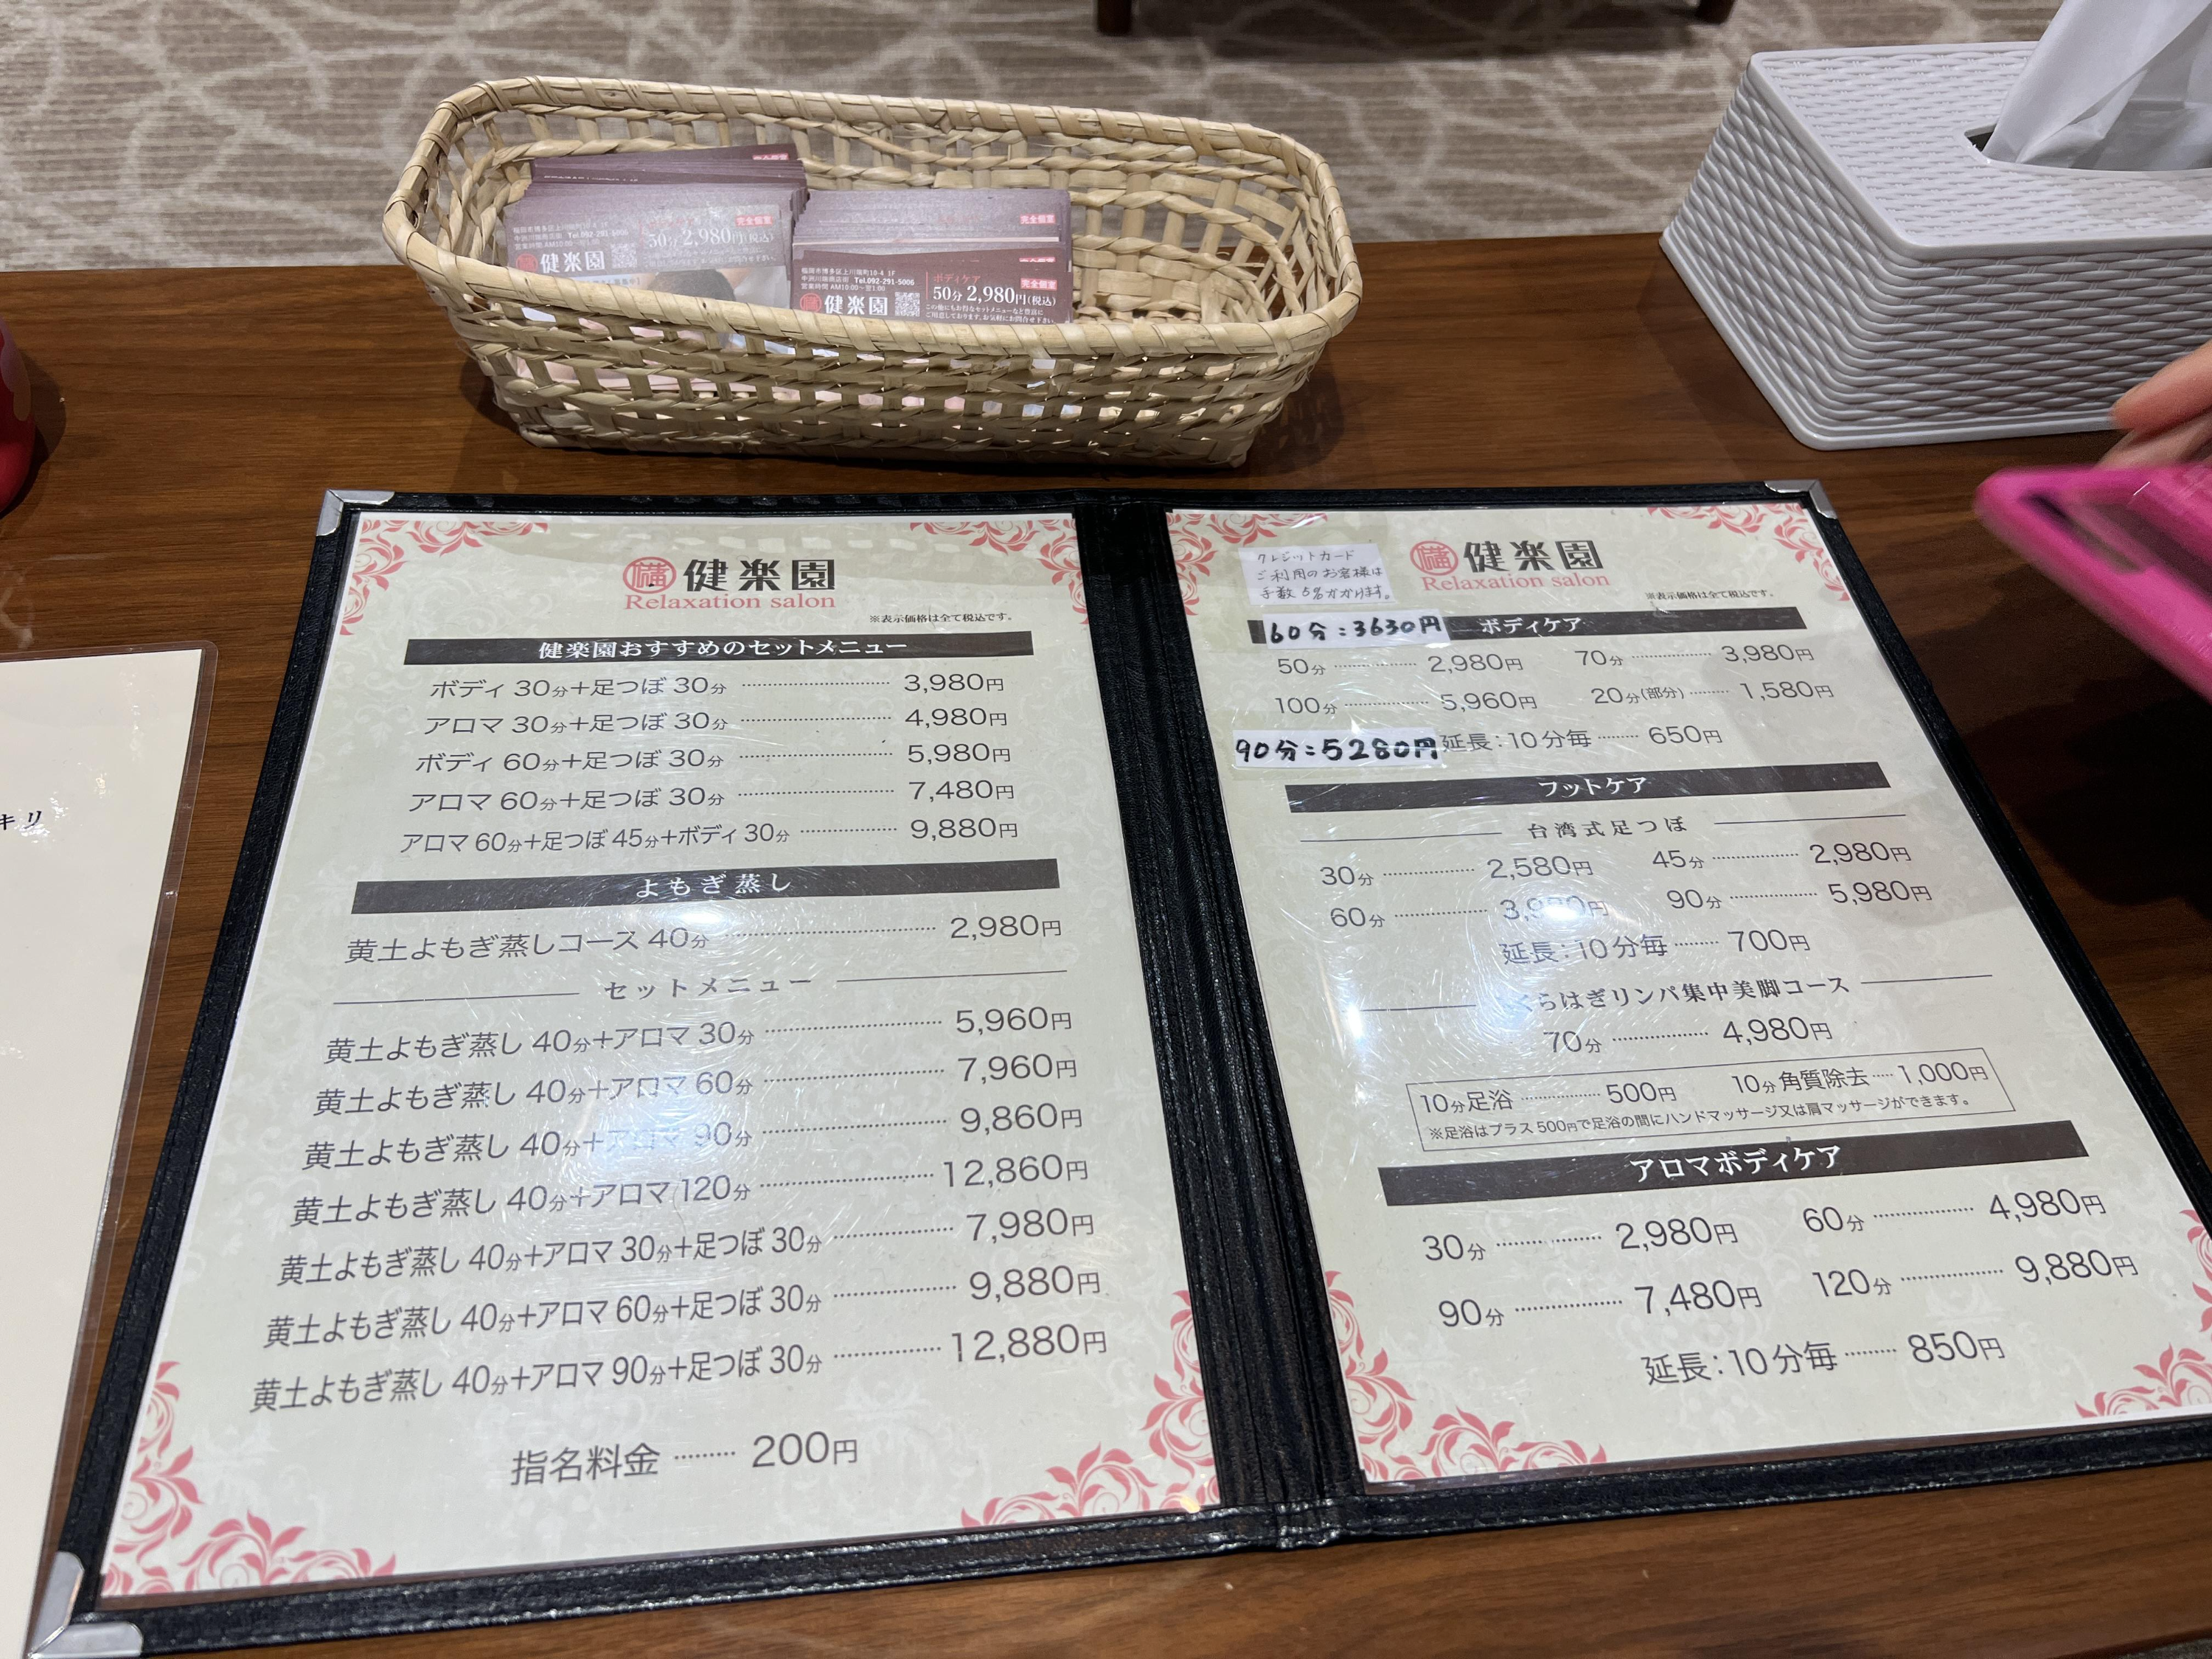 福岡市博多区上川端町10-4 1F
中洲川端商店街 Tel.092-291-5006
営業時間 AM10:00〜翌1:00
健楽園
完全個室
50分 2,980円(税込)
福岡市博多区上川端町10-4 1F
中洲川端商店街 Tel.092-291-5006
営業時間 AM10:00〜翌1:00
健楽園
完全個室
ボディケア
完全個室
50分 2,980円(税込)
この他にもお得なセットメニューなど豊富に
ご用意しております。お気軽にお問合せ下さい。
キリ
健楽園
Relaxation salon
※表示価格は全て税込です。
健楽園おすすめのセットメニュー
ボディ 30分+足つぼ 30分 ………… 3,980円
アロマ 30分+足つぼ 30分 ………… 4,980円
ボディ 60分+足つぼ 30分 ………… 5,980円
アロマ 60分+足つぼ 30分 ………… 7,480円
アロマ 60分+足つぼ 45分+ボディ 30分 ………… 9,880円
よもぎ蒸し
黄土よもぎ蒸しコース 40分 ………… 2,980円
セットメニュー
黄土よもぎ蒸し 40分+アロマ 30分 ………… 5,960円
黄土よもぎ蒸し 40分+アロマ 60分 ………… 7,960円
黄土よもぎ蒸し 40分+アロマ 90分 ………… 9,860円
黄土よもぎ蒸し 40分+アロマ 120分 ………… 12,860円
黄土よもぎ蒸し 40分+アロマ 30分+足つぼ 30分 ………… 7,980円
黄土よもぎ蒸し 40分+アロマ 60分+足つぼ 30分 ………… 9,880円
黄土よもぎ蒸し 40分+アロマ 90分+足つぼ 30分 ………… 12,880円
指名料金 ……… 200円
クレジットカード
ご利用のお客様は
手数 5%かかります。
健楽園
Relaxation salon
※表示価格は全て税込です。
60分:3630円 ボディケア
50分 ………… 2,980円 70分 ………… 3,980円
100分 ………… 5,960円 20分(部分) ……… 1,580円
90分:5280円 延長:10分毎 ……… 650円
フットケア
台湾式足つぼ
30分 ………… 2,580円 45分 ………… 2,980円
60分 ………… 3,980円 90分 ………… 5,980円
延長:10分毎 ……… 700円
くらはぎリンパ集中美脚コース
70分 ………… 4,980円
10分足浴 ………… 500円 10分角質除去 …… 1,000円
※足浴はプラス500円で足浴の間にハンドマッサージ又は肩マッサージができます。
アロマボディケア
30分 ………… 2,980円 60分 ………… 4,980円
90分 ………… 7,480円 120分 ………… 9,880円
延長:10分毎 ……… 850円